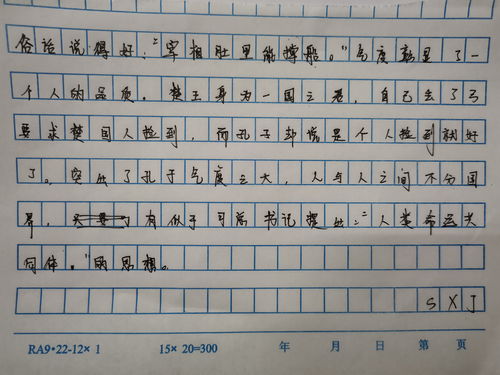 俗话说得好:"宰相肚里能撑船。"气度彰显了一
个人的品质。楚王身为一国之君,自己丢了弓
要求楚国人捡到,而孔子却说是个人捡到就好
了。突出了孔子气度之大,人与人之间不分国
界,有似于习总书记提出:"人类命运共
同体。"的思想。
SXJ
RA9·22-12×1 15×20=300 年 月 日 第 页